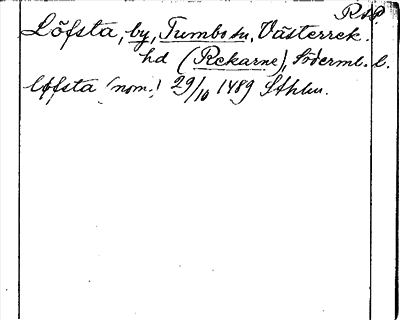 RAP
Löfsta, by, Tumbo sn, Västerrek.
hd (Rekarne), Söderml. l.
Løfsta (nom.) 29/10 1489 Sthlm.